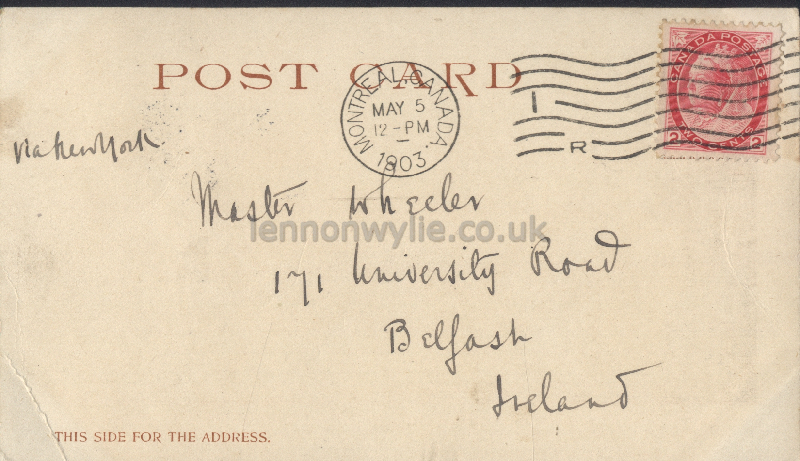 POST CARD
MONTREAL, CANADA.
MAY 5
12-PM
1903
I
R
CANADA POSTAGE
TWO CENTS
2 2
via New York
Master Wheeler
lennonwylie.co.uk
171 University Road
Belfast
Ireland
THIS SIDE FOR THE ADDRESS.